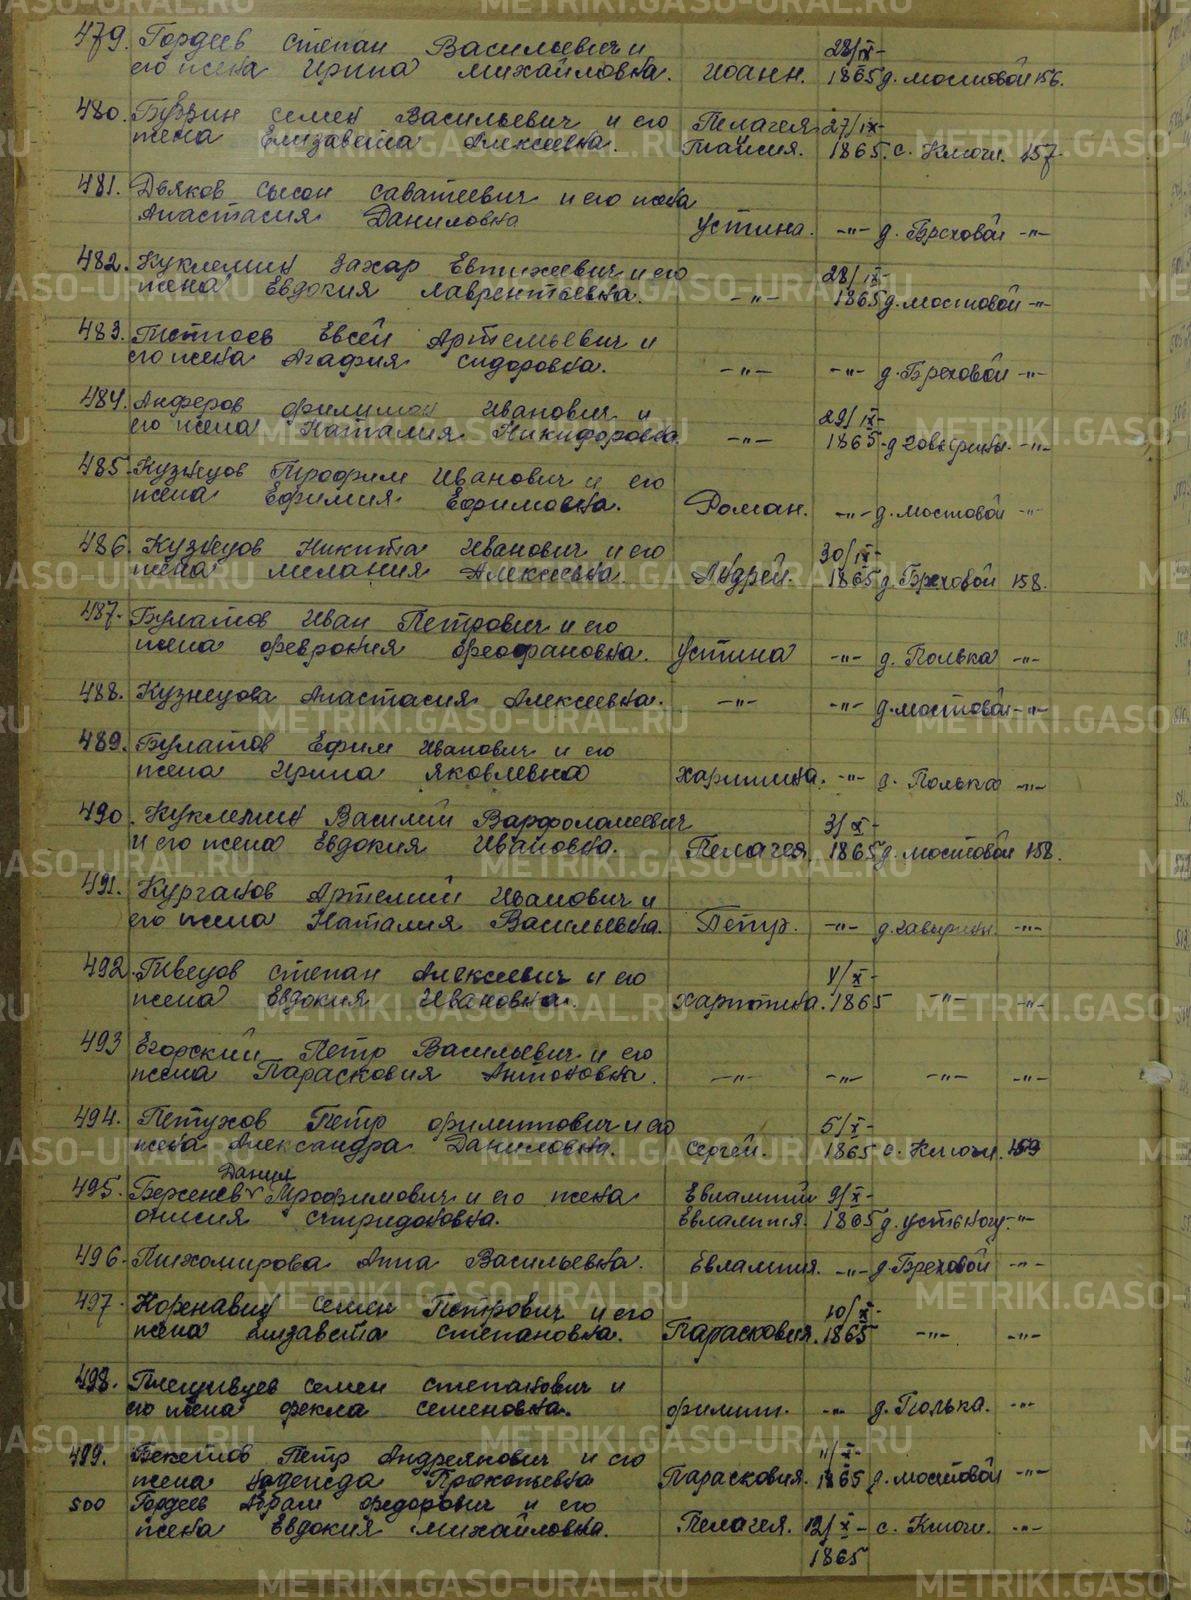 479. Гордеев Степан Васильевич и 28/IX-
его жена Ирина Михайловна. Иоанн. 1865 д. Мостовой 156.
480. Бубрин Семен Васильевич и его Пелагея 27/IX-
жена Елизавета Алексеевна. Таисия. 1865. с. Ключи. 157
481. Дьяков Сысой Саватеевич и его жена
Анастасия Даниловна Устина. -"- д. Бреховой -"-
482. Куклемин Захар Евтихеевич и его 28/IX-
жена Евдокия Лаврентьевна. -"- 1865 д. Мостовой -"-
483. Евсей Артемьевич и
его жена Агафия Сидоровна. -"- -"- д. Бреховой -"-
484. Анферов Филимон Иванович и 29/IX-
его жена Наталия Никифоровна -"- 1865 -д -"-
485. Кузнецов Трофим Иванович и его
жена Ефимия Ефимовна. Роман. -"- д. Мостовой -"-
486. Кузнецов Никита Иванович и его 30/IX-
жена Мелания Алексеевна. Андрей. 1865 д. Бреховой 158.
487. Булатов Иван Петрович и его
жена Феврония Феофановна. Устина -"- д. Полька -"-
488. Кузнецова Анастасия Алексеевна. -"- -"- д. Мостовой -"-
489. Булатов Ефим Иванович и его
жена Ирина Яковлевна Харитина. -"- д. Полька -"-
490. Куклемин Василий Варфоломеевич 3/X-
и его жена Евдокия Ивановна. Пелагея 1865 д. Мостовой 158.
491. Курганов Артемий Иванович и
его жена Наталия Васильевна. Петр. -"- д. -"-
492. Швецов Степан Алексеевич и его 4/X-
жена Евдокия Ивановна. Харитина. 1865 -"- -"-
493 Егорский Петр Васильевич и его
жена Парасковия Антоновна. -"- -"- -"- -"-
494. Петухов Петр Филиппович и его 5/X-
жена Александра Даниловна. Сергей. 1865 с. Ключи. 159
Данил
495. Берсенев v Трофимович и его жена Евлампий 9/X-
Онисия Спиридоновна. Евлампия. 1865 д. -"-
496. Тихомирова Анна Васильевна. Евлампия. -"- д. Бреховой -"-
497. Коренавин Семен Петрович и его 10/X-
жена Елизавета Степановна. Парасковия. 1865 -"- -"-
498. Семен Степанович и
его жена Фекла Семеновна. Филипп. -"- д. Полька. -"-
499. Бекетов Петр Андреянович и его 11/X-
жена Надежда Прокопьевна Парасковия. 1865 д. Мостовой -"-
500 Гордеев Абрам Федорович и его
жена Евдокия Михайловна. Пелагея. 12/X- с. Ключи. -"-
1865
METRIKI.GASO-URAL.RU